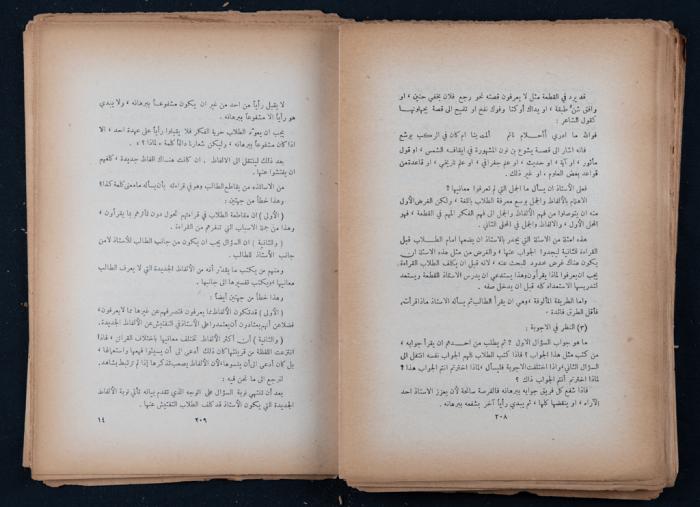 قد يرد في القطعة مثل لا يعرفون قصته نحو رجع فلان بخفي حنين ، او
وافق شن طبقة ، او يداك أوكتا وفوك نفخ او تلميح الى قصة يجهلونها
كقول الشاعر :
فوالله ما ادري أأحلام نائم ألمت بنا ام كان في الركب يوشع
فانه اشار الى قصة يشوع بن نون المشهورة في ايقافه الشمس ، او قول
مأثور ، او آية ، او حديث ، او علم جغرافي ، او علم تاريخي ، او قاعدة من
قواعد بعض العلوم ، او غير ذلك .
فعلى الأستاذ ان يسأل ما الجمل التي لم تعرفوا معانيها ؟
الاهتمام بالألفاظ والجمل يوسع معرفة الطلاب باللغة ، ولكن الغرض الأول
منه ان يتوصلوا من فهم الألفاظ والجمل الى فهم الفكر المهم في القطعة ، فهو
المحل الأول ، والالفاظ والجمل في المحل الثاني .
هذه امثلة من الاسئلة التي يجدر بالاستاذ ان يضعها امام الطلاب قبل
القراءة الثانية ليجدوا الجواب عنها ، والغرض من مثل هذه الاسئلة ان
يكون هناك غرض محدود للبحث عنه ، لانه قبل ان يكلف الطلاب القراءة
يجب ان يعرفوا لماذا يقرأون وهذا يستدعي ان يدرس الاستاذ القطعة ويستعد
لتدريسها الاستعداد كله قبل ان يدخل صفه .
واما الطريقة المألوفة ، وهي ان يقرأ الطالب ثم يسأله الاستاذ ماذا قرأت،
فأقل الطرق فائدة .
(٣) النظر في الاجوبة :
ما هو جواب السؤال الاول ؟ ثم يطلب من احدهم ان يقرأ جوابه ،
من كتب مثل هذا الجواب ؟ فاذا كتب الطلاب كلهم الجواب نفسه انتقل الى
السؤال الثاني، واذا اختلفت الاجوبة فليسأل ، لماذا اخترتم انتم الجواب هذا ؟
لماذا اخترتم أنتم الجواب ذاك ؟
فاذا شفع كل فريق جوابه ببرهانه فالفرصة سانحة لأن يعزز الاستاذ احد
الآراء ، او ينقضها كلها ، ثم يبدي رأياً آخر يشفعه ببرهانه .
٢٠٨
لا يقبل رأياً من احد من غير ان يكون مشفوعاً ببرهانه ، ولا يبدي
هو رأياً الا مشفوعاً ببرهانه .
يجب ان يعود الطلاب حرية الفكر فلا يقبلوا رأياً على عهدة احد ، الا
اذا كان مشفوعاً ببرهانه ، وليكن شعارنا دائماً كلمة « لماذا ؟ » .
بعد ذلك لينتقل الى الالفاظ . ان كانت هناك الفاظ جديدة ، كلفهم
ان يفتشوا عنها .
من الاساتذه من يقاطع الطالب وهو في قراءته بأن يسأله ما معنى كلمة كذا؟
وهذا خطأ من جهتين :
( الأولى ) ان مقاطعة الطلاب في قراءتهم تحول دون تأثرهم بما يقرأون ،
وهذا من جملة الاسباب التي تنفرهم من القراءة .
( والثانية ) ان السؤال يجب ان يكون من جانب الطالب للأستاذ لا من
جانب الأستاذ للطالب .
ومنهم من يكتب ما يقدّر أنه من الألفاظ الجديدة التي لا يعرف الطالب
معانيها ، ويكتب تفسيرها الى جانبها .
وهذا خطأ من جهتين أيضاً :
( الأولى ) قد تكون الألفاظ مما يعرفون فتصرفهم عن غيرها مما لا يعرفون،
فضلا عن أنهم يعتادون أن يعتمدوا على الأستاذ في التفتيش عن الألفاظ الجديدة.
( والثانية ) أن أكثر الألفاظ تختلف معانيها باختلاف القرائن ، فاذا
انتزعت اللفظة من قرينتها كان ذلك أدعى الى أن يسيئوا فهمها واستعمالها ،
بل كان أدعى الى أن ينسوها، لأن الألفاظ يصعب تذكرها إذا لم ترتبط بشاهد.
لنرجع الى ما نحن فيه :
بعد أن تنتهي نوبة السؤال على الوجه الذي تقدم بيانه تأتي نوبة الألفاظ
الجديدة التي يكون الأستاذ قد كلف الطلاب التفتيش عنها .
٢٠٩
١٤